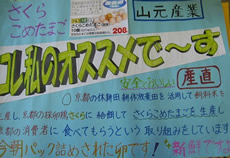 さくら
こめたまご
208
山元産業
コレ私のオススメで〜す
安全
産直
京都の休耕田・耕作放棄田を活用して飼料米を
生産し、京都の採卵鶏さくらに給餌して さくらこめたまごを生産し
京都の消費者に 食べてもらうという取り組みをしています
今朝パック詰めされた卵です！ 新鮮です